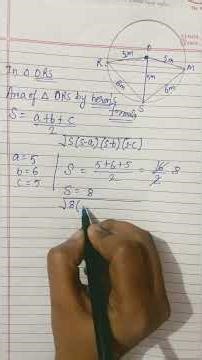 O
5m
5m
R
M
5m
6m
6m
S
In △ ORS
Area of △ ORS by heron's
formula
S = a+b+c
2
√S(S-a)(S-b)(S-c)
a = 5
b = 6
c = 5
S = 5+6+5 = 16 8
2 2
S = 8
√8(